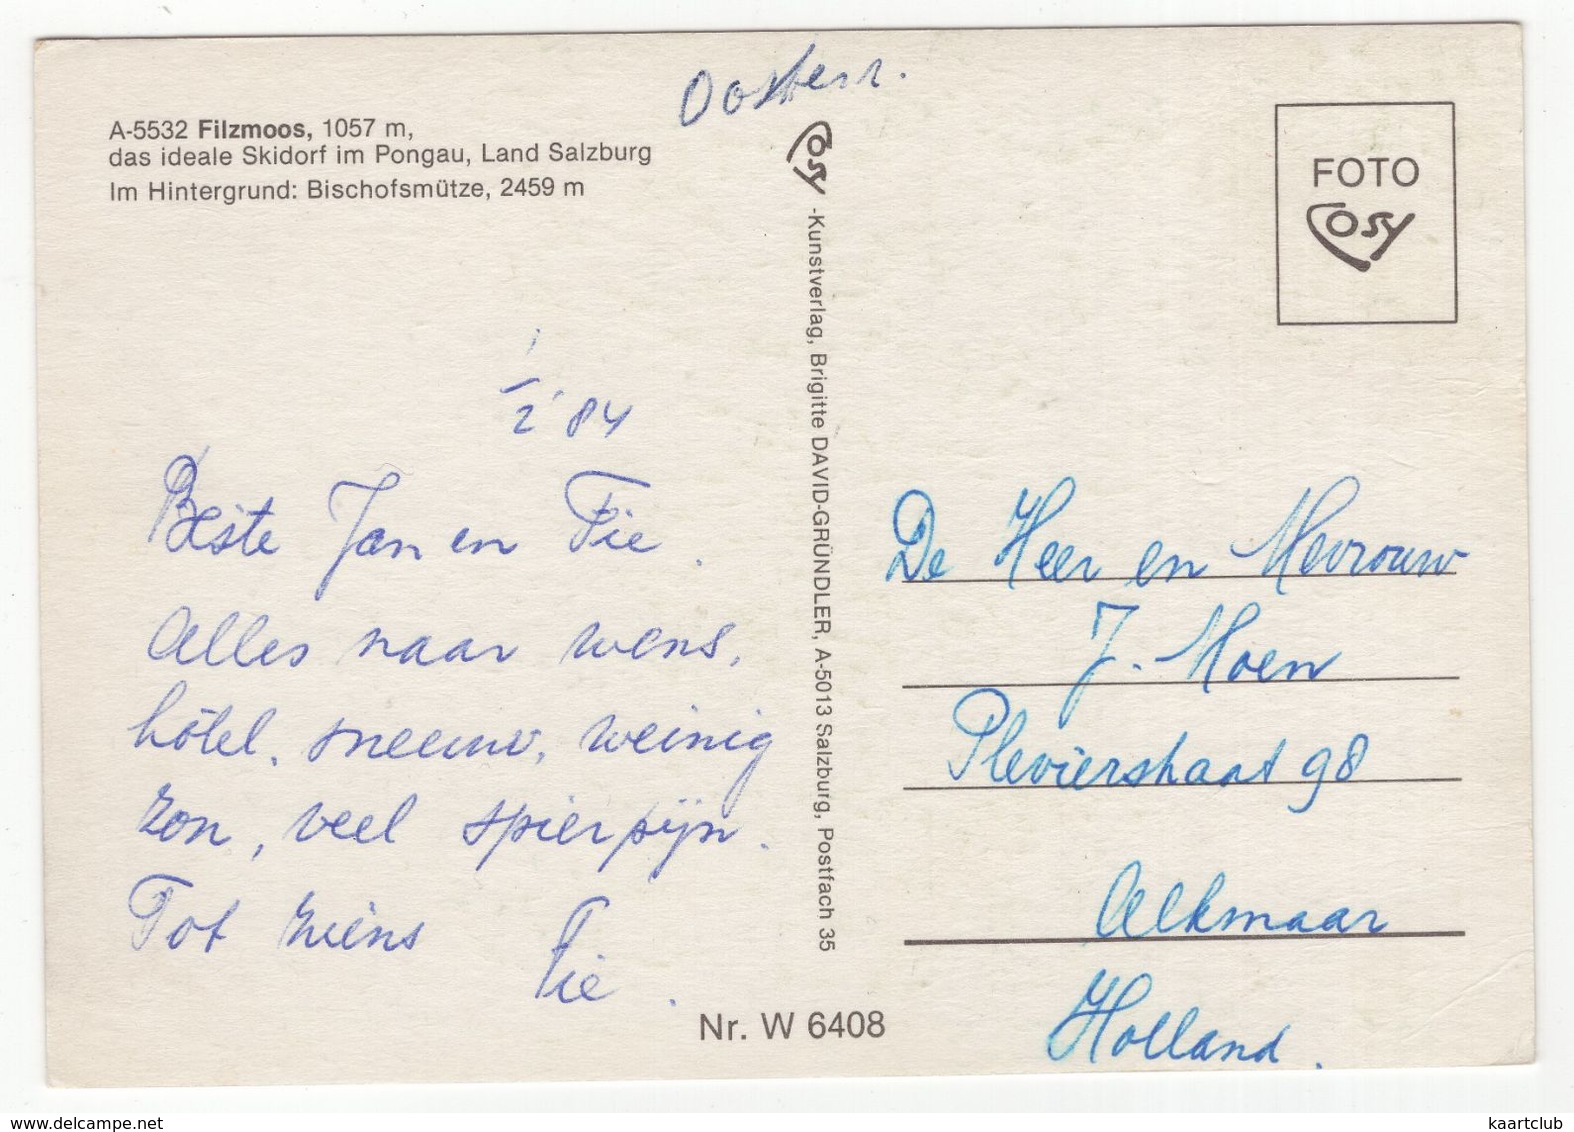 Oostenr.
A-5532 Filzmoos, 1057 m,
das ideale Skidorf im Pongau, Land Salzburg
Im Hintergrund: Bischofsmütze, 2459 m
Cosy -Kunstverlag, Brigitte DAVID-GRÜNDLER, A-5013 Salzburg, Postfach 35
FOTO
Cosy
1/2 '84
Beste Jan en Fie.
Alles naar wens,
hôtel, sneeuw, weinig
zon, veel spierpijn.
Tot ziens Fie.
De Heer en Mevrouw
J. Moen
Plevierstraat 98
Alkmaar
Holland.
Nr. W 6408
www.delcampe.net
kaartclub